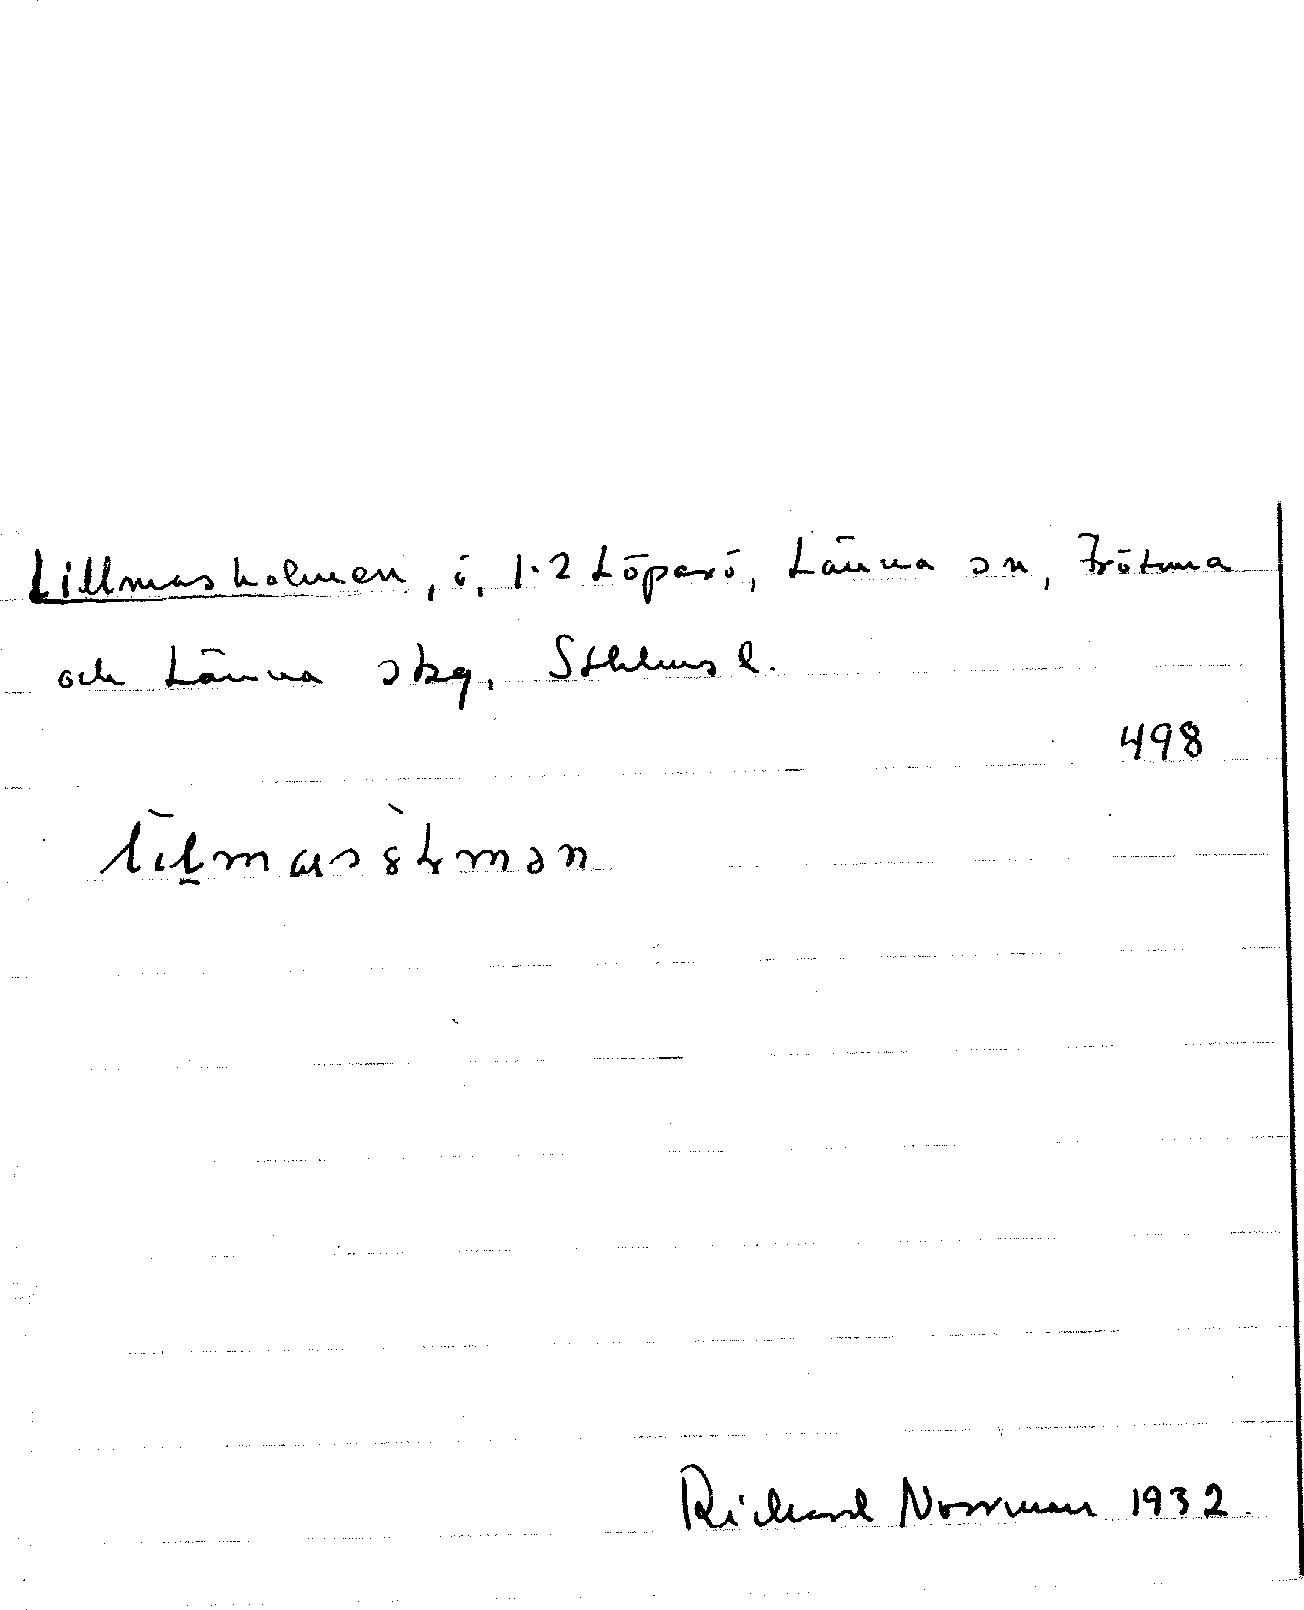 Lillmasholmen, ö, 1.2 Löparö, Länna sn, Frötuna
och Länna skg, Sthlms l.
498
Richard Norrman 1932